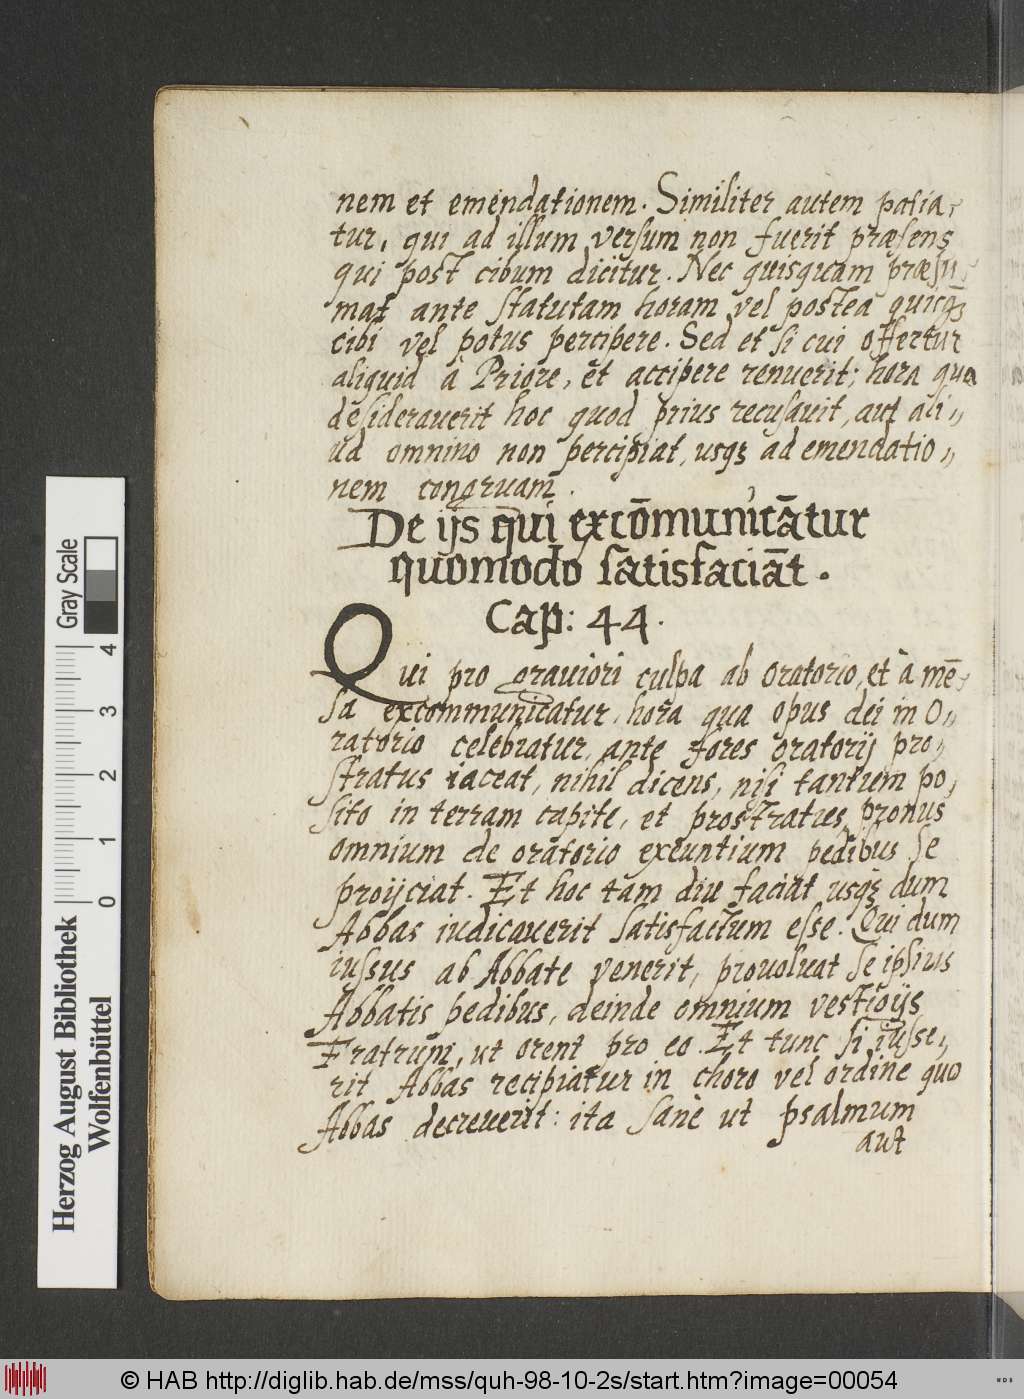 nem et emendationem. Similiter autem patia,
tur, qui ad illum versum non fuerit præsens
qui post cibum dicitur. Nec quisquam præsu
mat ante statutam horam vel postea quicqȝ
cibi vel potus percipere. Sed et si cui offertur
aliquid à Priore, et accipere renuerit; hora qua
desideraverit hoc quod prius recusavit, aut ali„
ud omnino non percipiat, usqȝ ad emendatio„
nem congruam.
De ijs qui excōmunicātur
quomodo satisfaciāt.
Cap: 44.
Qui pro graviori culpa ab oratorio, et à mē,
sa excommunicatur, hora qua opus dei in O„
ratorio celebratur, ante fores oratorij pro„
stratus iaceat, nihil dicens, nisi tantum po,
sito in terram capite, et prostratus, pronus
omnium de oratorio exeuntium pedibus se
proijciat. Et hoc tam diu faciat usqȝ dum
Abbas iudicaverit satisfactum esse. Qui dum
iussus ab Abbate venerit, provolvat se ipsius
Abbatis pedibus, deinde omnium vestigijs
Fratrum, ut orent pro eo. Et tunc si iusse„
rit Abbas recipiatur in choro vel ordine quo
Abbas decreverit: ita sanè ut psalmum
aut
Herzog August Bibliothek
Wolfenbüttel
Gray Scale
0 1 2 3 4
© HAB http://diglib.hab.de/mss/quh-98-10-2s/start.htm?image=00054